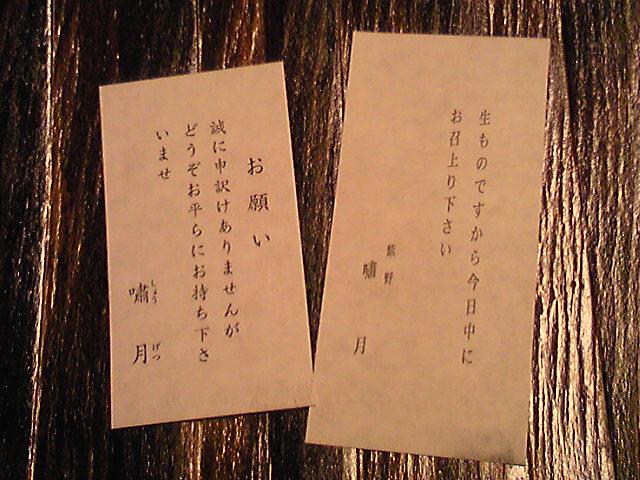 生ものですから今日中に
お召上り下さい
紫野
嘯月
お願い
誠に申訳けありませんが
どうぞお平らにお持ち下さ
いませ
嘯月
しょうげつ